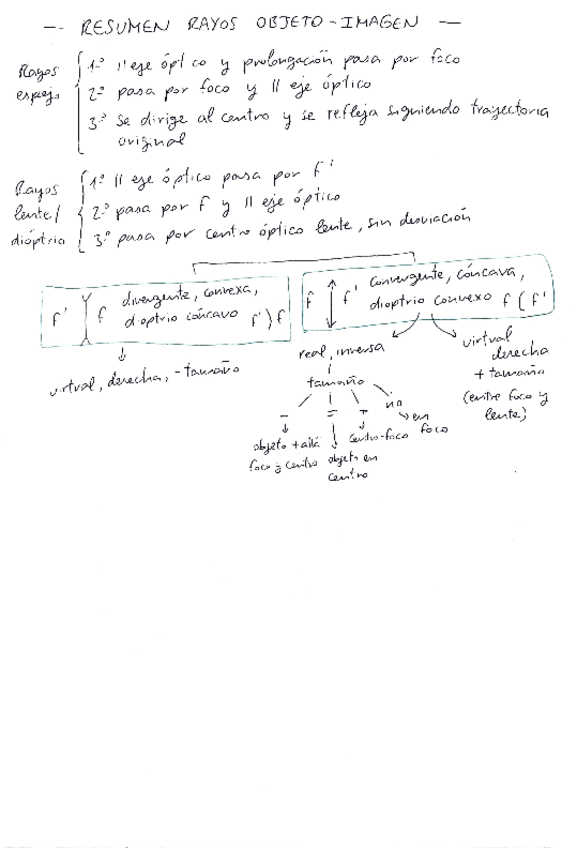 -- RESUMEN RAYOS OBJETO-IMAGEN --
Rayos espejo
1º || eje óptico y prolongación pasa por foco
2º pasa por foco y || eje óptico
3º se dirige al centro y se refleja siguiendo trayectoria
original
Rayos lente/ dioptrio
1º || eje óptico pasa por f'
2º pasa por f y || eje óptico
3º pasa por centro óptico lente, sin desviación
f' f divergente, convexa,
dioptrio cóncavo f' ) f
virtual, derecha, - tamaño
f f' convergente, cóncava,
dioptrio convexo f ( f'
real, inversa
tamaño
- = + no
objeto + allá
foco y centro
objeto en
centro
centro-foco
en
foco
virtual
derecha
+ tamaño
(entre foco y
lente)